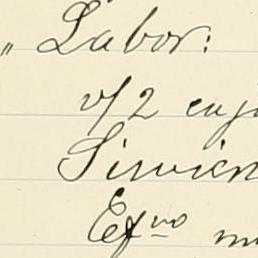 " Labor:
v/2 caj
Sirvien
Efvo m